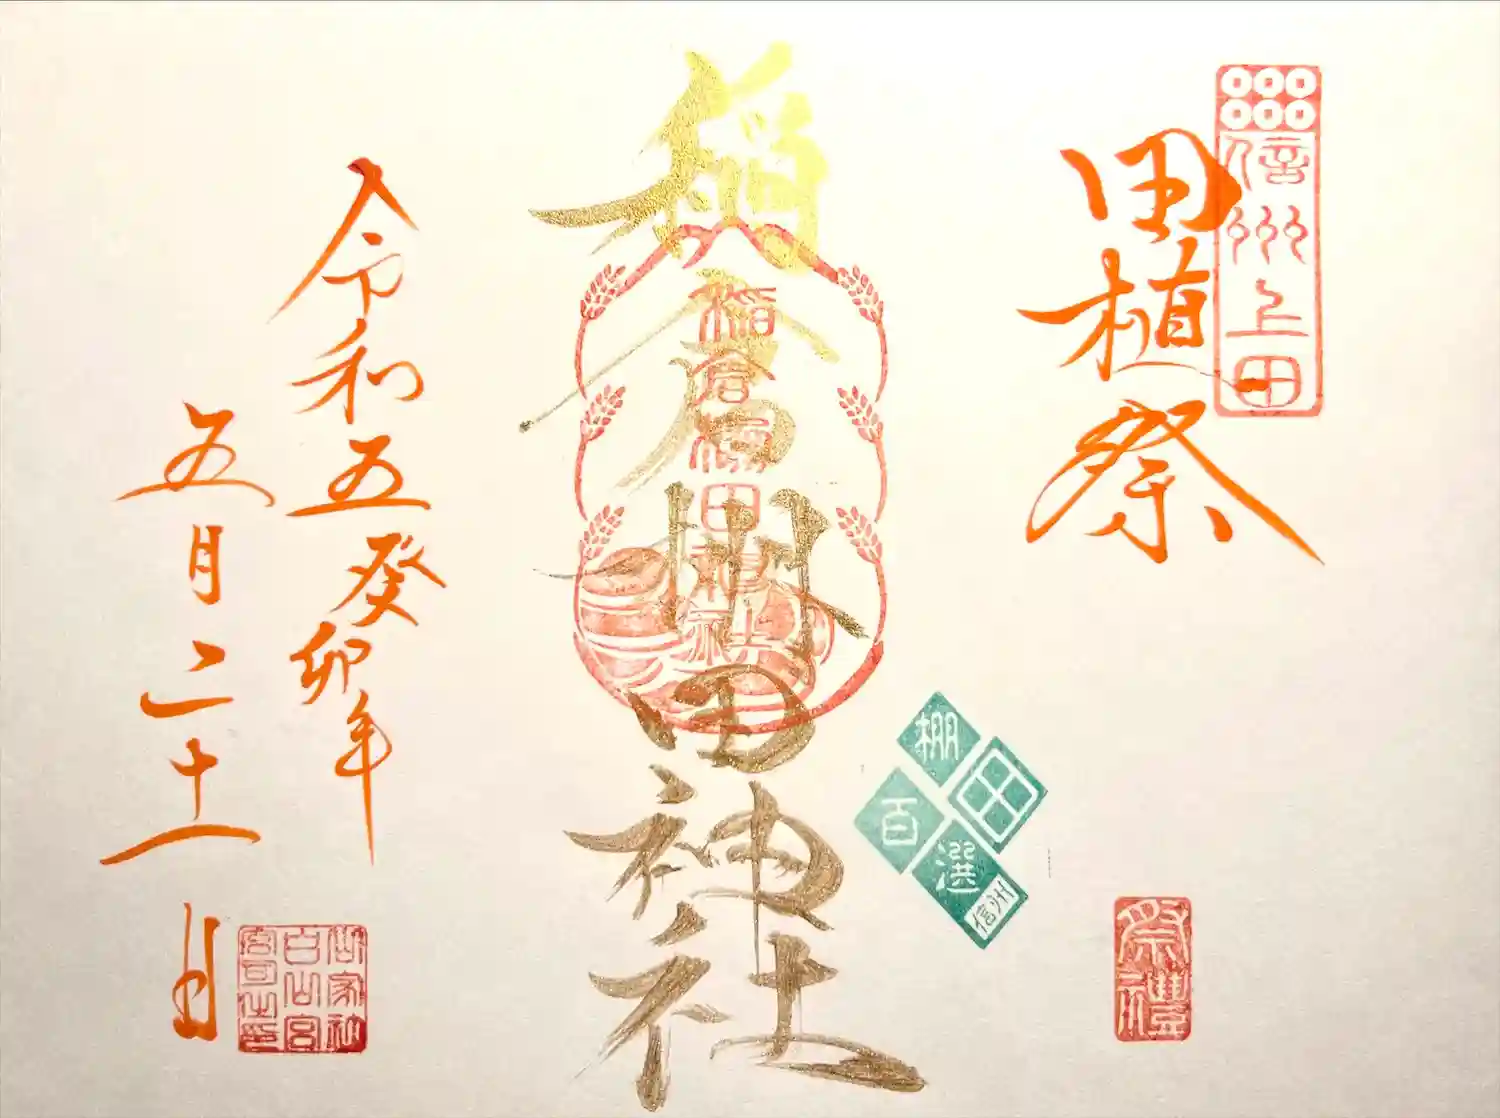 信州上田
田植祭
祭禮
稲倉棚田神社
稲倉棚田
神社
棚田
百選
信州
令和五癸卯年
五月二十一日
白山宮